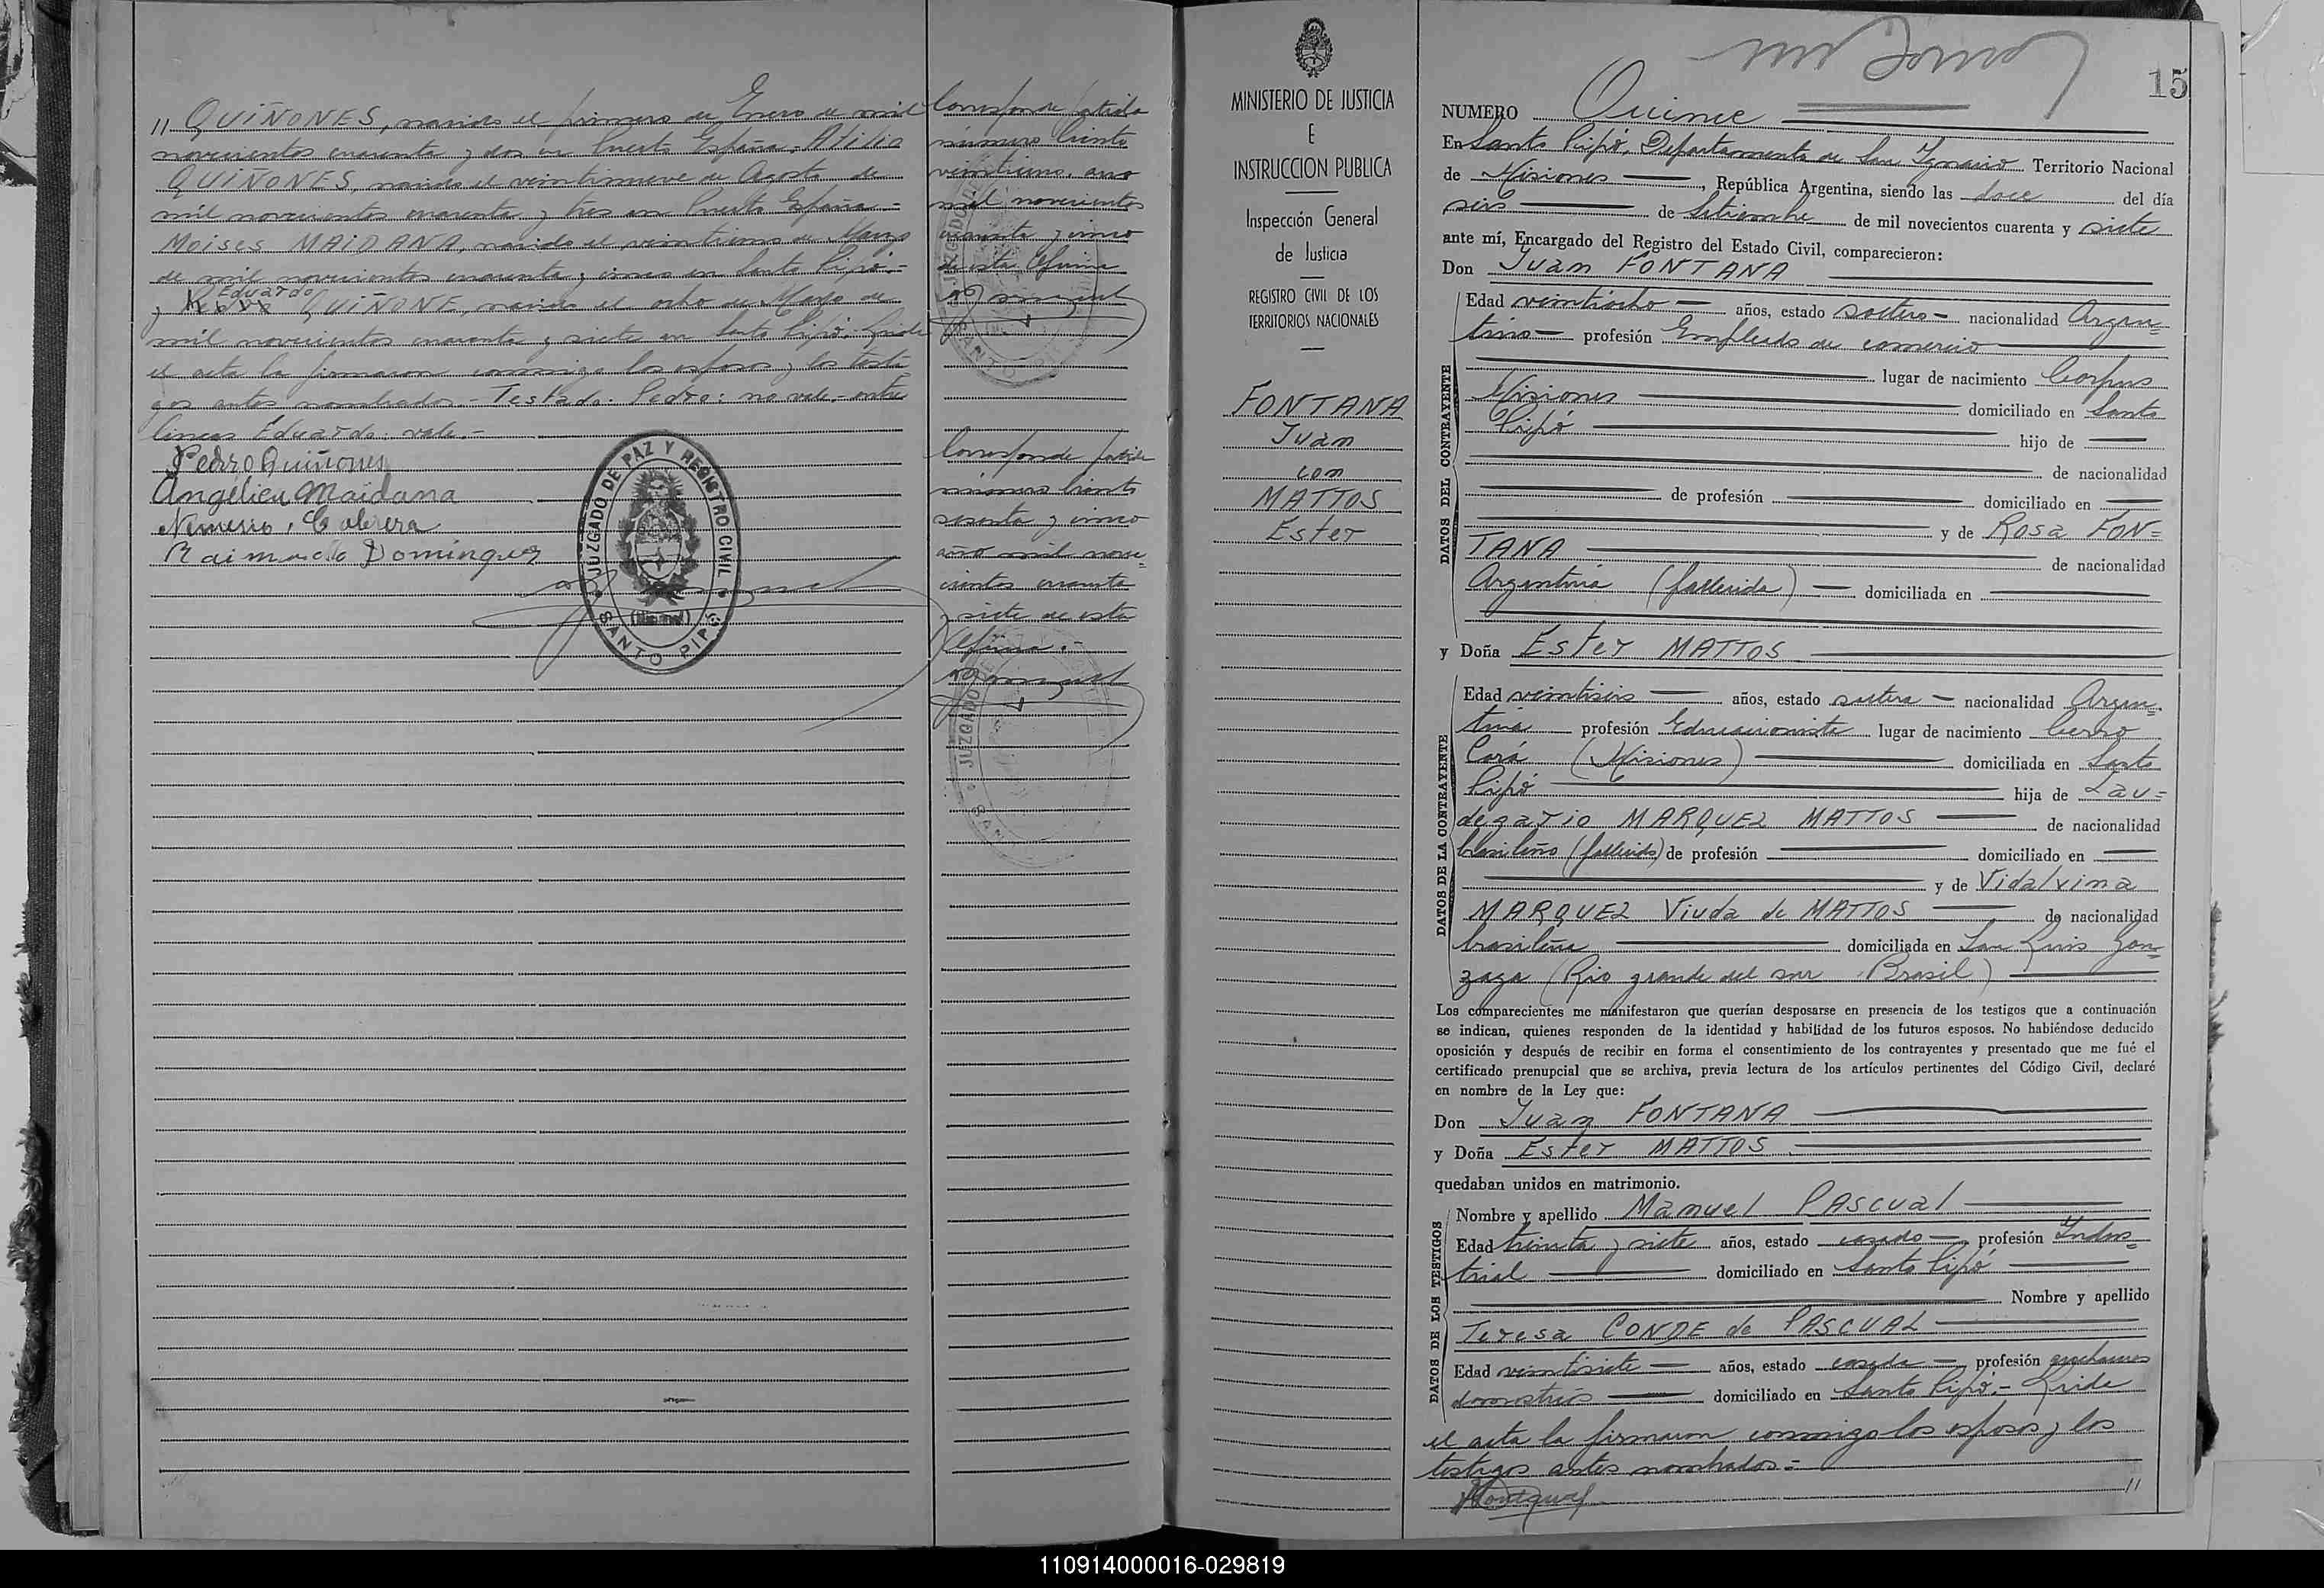 // QUIÑONES, nacido el primero de Enero de mil
novecientos cuarenta y dos en Puerto España, Atilio
QUIÑONES, nacido el veintinueve de Agosto de
mil novecientos cuarenta y tres en Puerto España =
Moises MAIDANA, nacido el veintiuno de Marzo
de mil novecientos cuarenta y cinco en Santo Pipó =
Eduardo
y QUIÑONE, nacido el ocho de Mayo de
mil novecientos cuarenta y siete en Santo Pipó.- Leida
el acta la firmaron conmigo los esposos y los testi=
gos antes nombrados.- Testado: Pedro: no vale.- entre
lineas Eduardo: vale.-
Pedro Quiñones
Angélica Maidana
Nemesio Cabrera
Raimundo Dominguez
JUZGADO DE PAZ Y REGISTRO CIVIL
(Misiones)
SANTO PIPÓ
Corresponde partida
número Ciento
veintiuno, año
mil novecientos
cuarenta y cinco
de esta Oficina
Corresponde partida
número Ciento
sesenta y cinco
año mil nove=
cientos cuarenta
y siete de esta
Oficina.-
JUZGADO DE
MINISTERIO DE JUSTICIA
E
INSTRUCCION PUBLICA
Inspección General
de Justicia
REGISTRO CIVIL DE LOS
TERRITORIOS NACIONALES
FONTANA
Juan
con
MATTOS
Ester
15
NUMERO Quince
En Santo Pipó, Departamento de San Ignacio Territorio Nacional
de Misiones, República Argentina, siendo las doce del día
seis de Setiembre de mil novecientos cuarenta y siete
ante mí, Encargado del Registro del Estado Civil, comparecieron:
Don Juan FONTANA
DATOS DEL CONTRAYENTE
Edad veintiocho años, estado soltero nacionalidad Argen=
tino profesión Empleado de comercio
lugar de nacimiento Corpus
Misiones domiciliado en Santo
Pipó hijo de
de nacionalidad
de profesión domiciliado en
y de Rosa FON=
TANA de nacionalidad
Argentina (fallecida) domiciliada en
y Doña Ester MATTOS
DATOS DE LA CONTRAYENTE
Edad veintiseis años, estado soltera nacionalidad Argen=
tina profesión Educacionista lugar de nacimiento Cerro
Corá (Misiones) domiciliada en Santo
Pipó hija de Lau=
degario MARQUEZ MATTOS de nacionalidad
brasileño (fallecido) de profesión domiciliado en
y de Vidalvina
MARQUEZ Viuda de MATTOS de nacionalidad
brasileña domiciliada en San Luis Gon=
zaga (Rio grande del sur Brasil)
Los comparecientes me manifestaron que querían desposarse en presencia de los testigos que a continuación
se indican, quienes responden de la identidad y habilidad de los futuros esposos. No habiéndose deducido
oposición y después de recibir en forma el consentimiento de los contrayentes y presentado que me fué el
certificado prenupcial que se archiva, previa lectura de los artículos pertinentes del Código Civil, declaré
en nombre de la Ley que:
Don Juan FONTANA
y Doña Ester MATTOS
quedaban unidos en matrimonio.
DATOS DE LOS TESTIGOS
Nombre y apellido Manuel PASCUAL
Edad treinta y siete años, estado casado profesión Indus=
trial domiciliado en Santo Pipó
Nombre y apellido
Teresa CONDE de PASCUAL
Edad veintisiete años, estado casada profesión quehaceres
domesticos domiciliado en Santo Pipó.- Leida
el acta la firmaron conmigo los esposos y los
testigos antes nombrados =
//
110914000016-029819